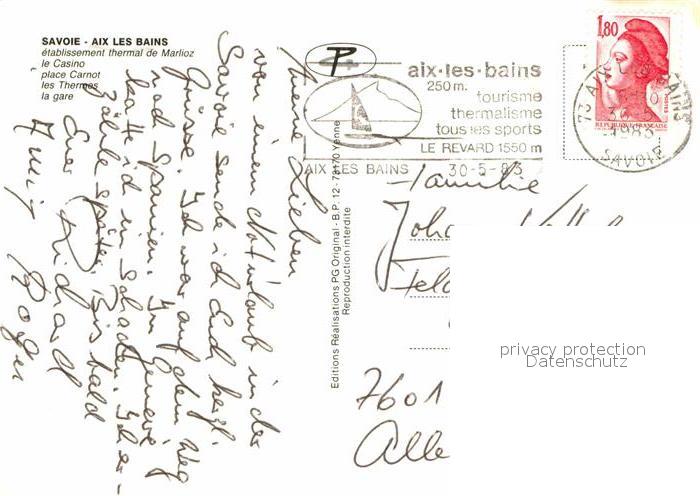 SAVOIE - AIX LES BAINS
établissement thermal de Marlioz
le Casino
place Carnot
les Thermes
la gare
Meine Lieben
von einem Noturlaub in der
Savoie sende ich Euch herzl.
Grüsse. Ich war auf dem Weg
nach Spanien. In Geneve
hatte ich ein Schaden.
später. Bis bald
Euer Richard
Roger
Editions Réalisations PG Original - B.P. 12 - 73170 Yenne
Reproduction interdite
aix·les·bains
250 m.
tourisme
thermalisme
tous les sports
LE REVARD 1550 m
AIX LES BAINS 30-5-85
1,80
REPUBLIQUE FRANCAISE
73 AIX LES BAINS
1985
SAVOIE
Familie
7601
privacy protection
Datenschutz